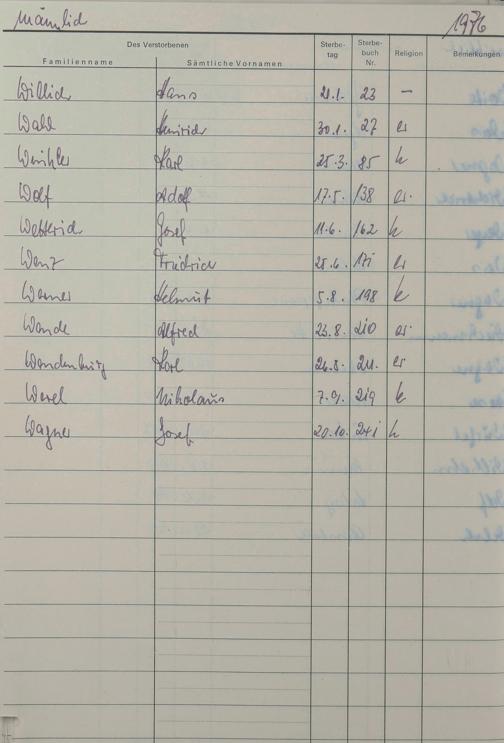 Männlich 1976
Des Verstorbenen
Familienname Sämtliche Vornamen Sterbe-tag Sterbe-buch Nr. Religion Bemerkungen
Willich Hans 21.1. 23 —
Wahl Heinrich 30.1. 27 ev
Winkler Karl 25.3. 85 k
Wolf Adolf 17.5. 138 ev.
Wetterich Josef 11.6. 162 k
Wenz Friedrich 25.6. 171 ev
Werner Helmut 5.8. 198 k
Wande Alfred 23.8. 210 ev.
Wandenburg Karl 24.8. 211. ev
Wesel Nikolaus 7.9. 219 k
Wagner Josef 20.10. 241 k